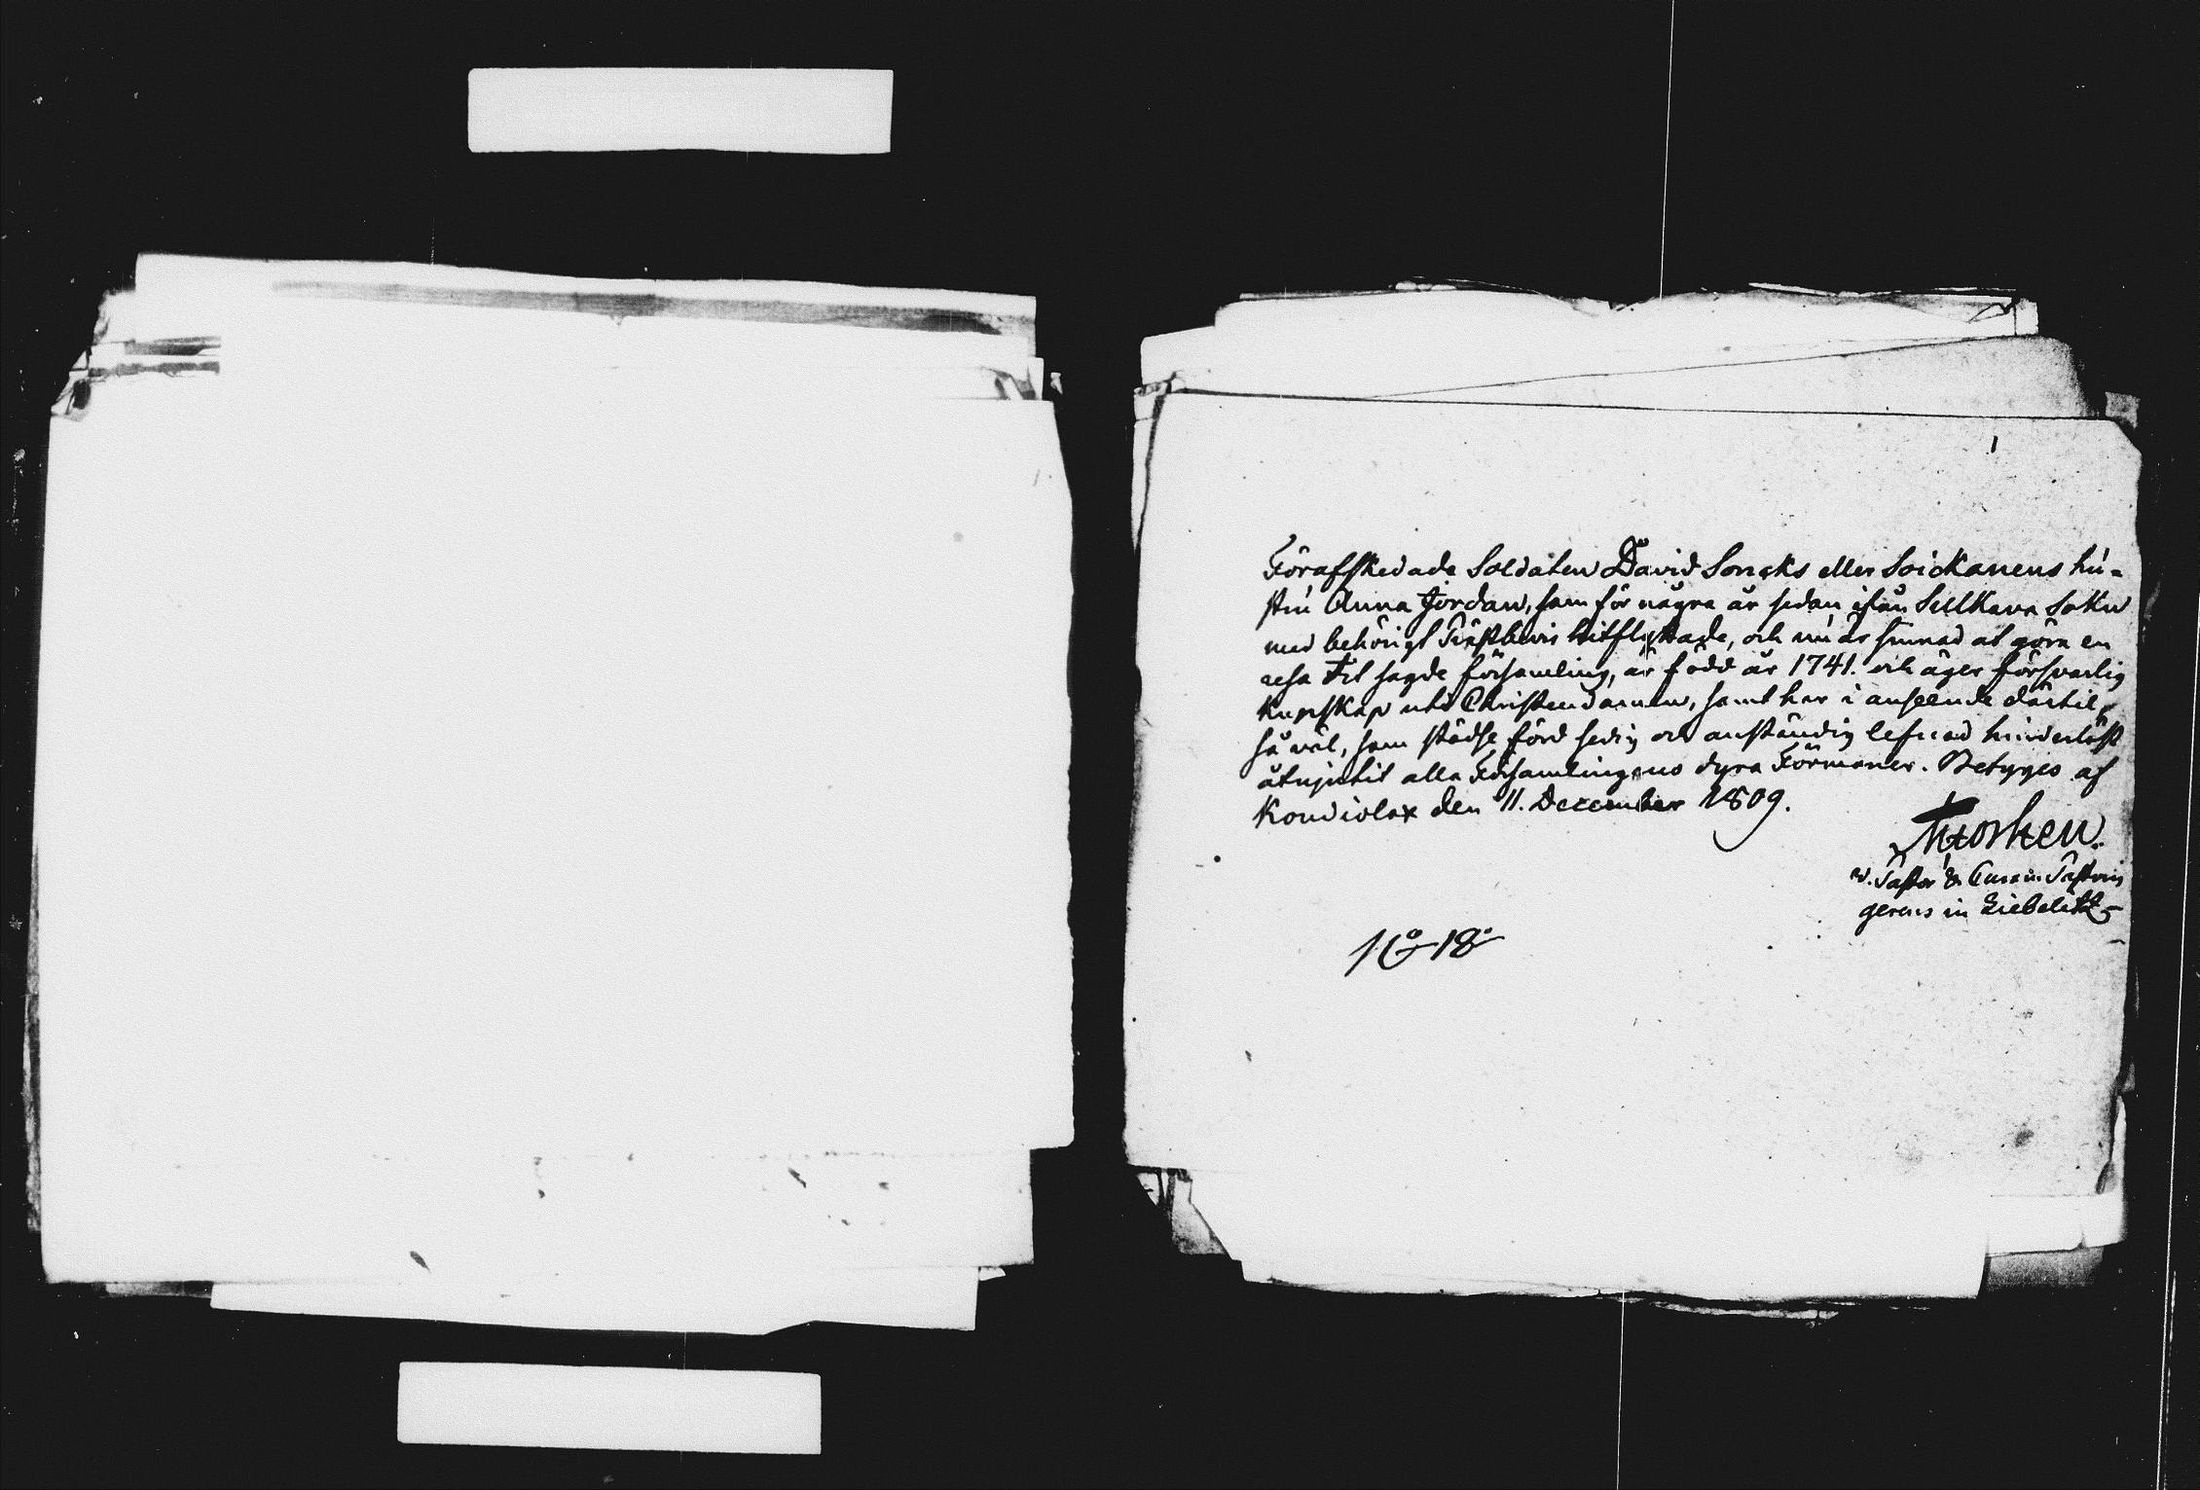 1
Förafskedade Soldaten David Soncks eller Soickanens hu-
stru Anna Jordan, som för några år sedan ifrån Sulkava Sokn
med behörigt Prästbevis hitflyttade, och nu är sinnad at göra en
resa til sagde församling, är född år 1741. och äger försvarlig
kunskap uti Christendomen, samt har i anseende därtil,
så väl, som städse förd sedig och anständig lefnad hinderlöst
åtnjutit alla Församlingens dyra Förmoner. Betyges af
Kondiolax den 11. December 1809.
v. Pastor &
gerens in Liebelitz
18